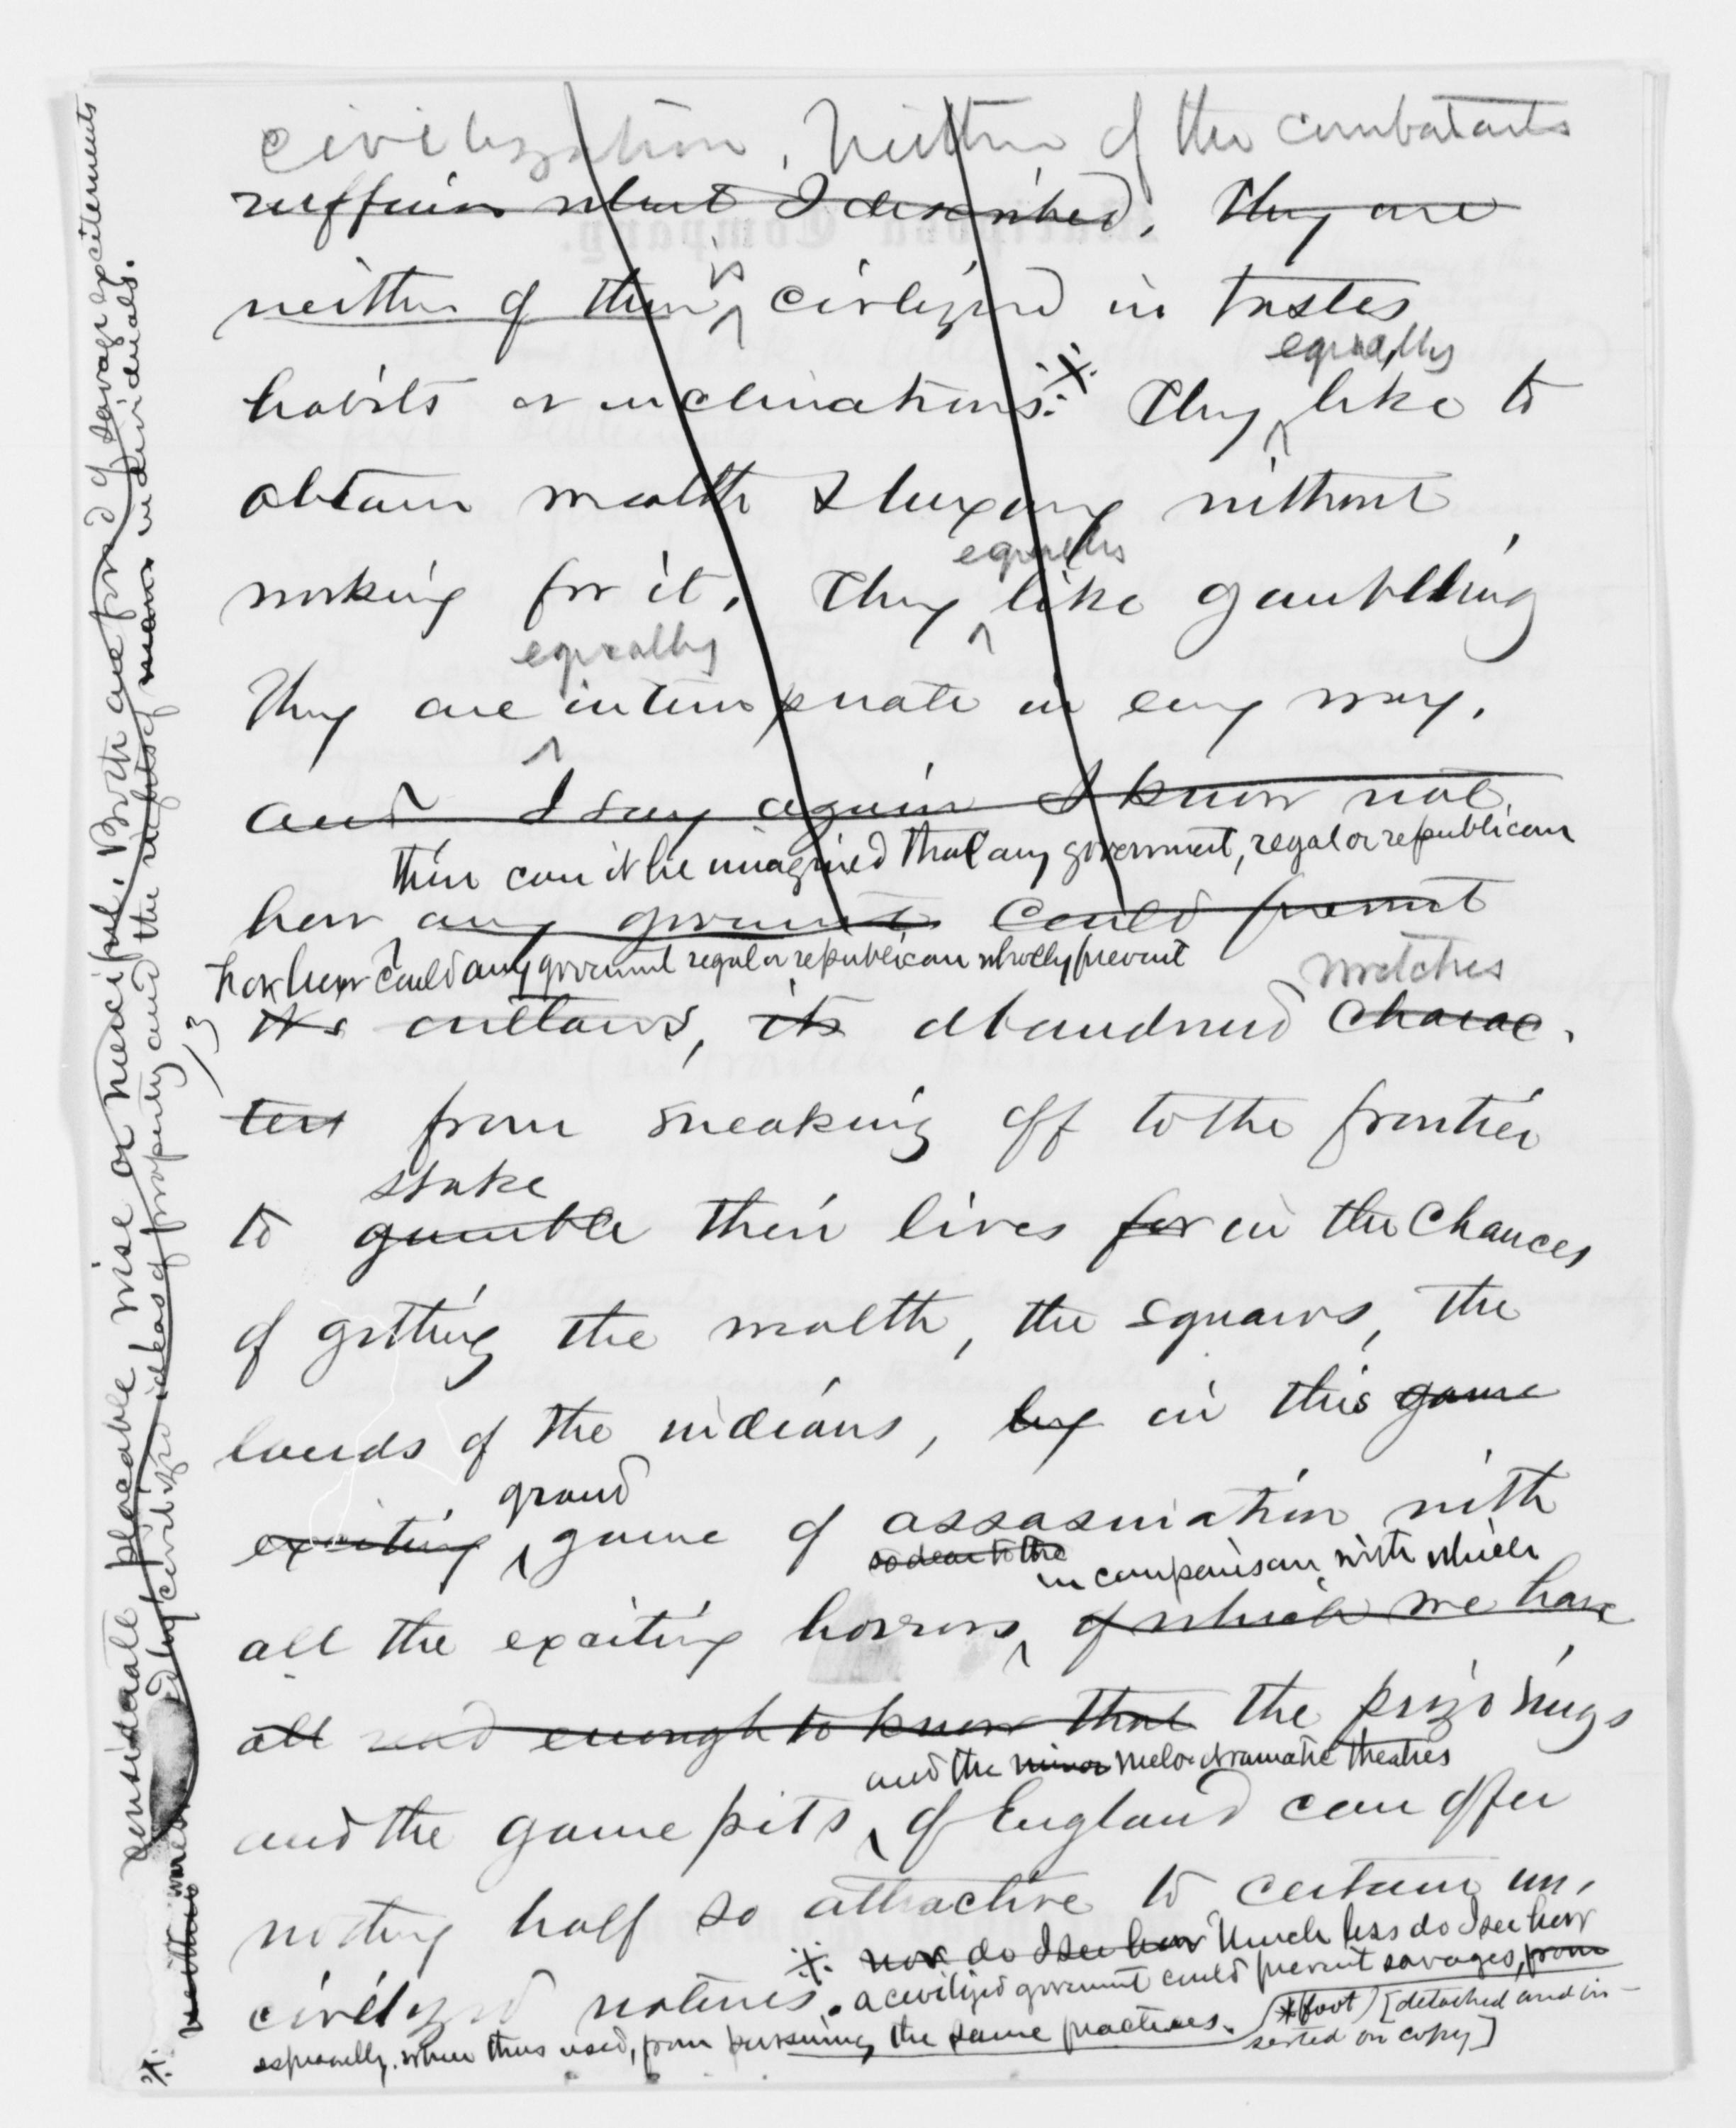 civilization. Neither of the combatants
ruffians what I described. They are
neither of them is civilized in tastes
equally
habits or inclinations.※ They like to
obtain wealth & luxury without
equally
working for it. They like gambling
equally
They are intemperate in every way.
and I say again I know not
then can it be imagined that any government, regal or republican
how any government could prevent
how could any government regal or republican wholly prevent
wretches
its outlaws, its abandoned charac-
ters from sneaking off to the frontier
stake
to gamble their lives for in the chances
of getting the wealth, the squaws, the
lands of the indians, by in this game
grand
exciting game of assassination with
so dear to the
in comparison with which
all the exciting horrors of which we have
all read enough to know that the prize rings
and the minor melo-dramatic theatres
and the game pits of England can offer
nothing half so attractive to certain un-
※ nor do I see how Much less do I see how
civilized natures. a civilized government could prevent savages, from
especially when thus used, from pursuing the same practices. (*foot) [detached and in-
serted on copy]
13
※ neither
considerate placable wise or merciful. Both are fond of savage excitements
civilized ideas of property and the rights of individuals.